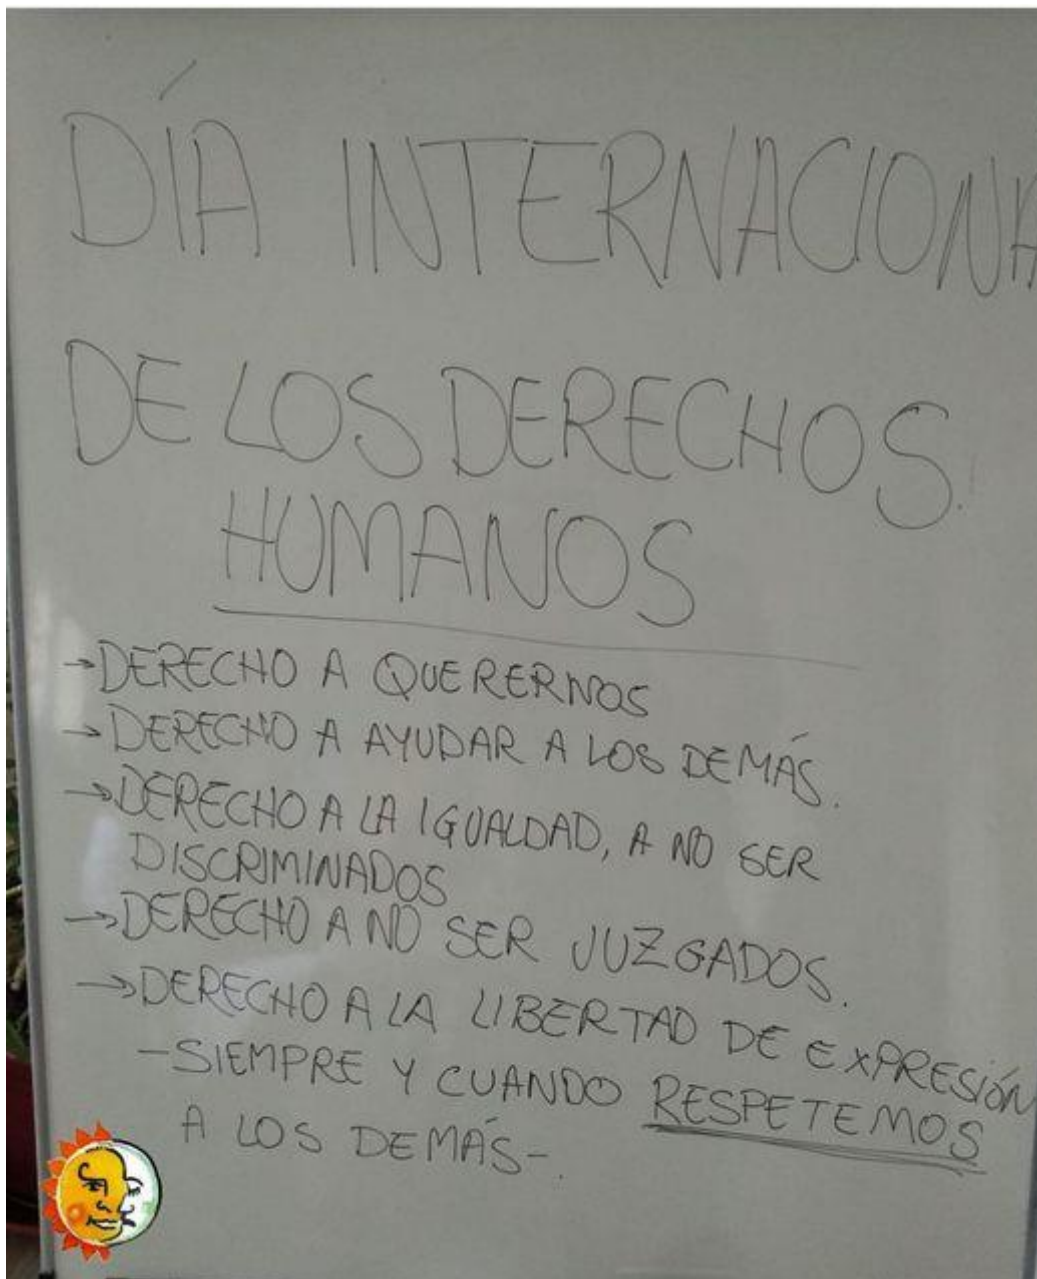 DÍA INTERNACIONA
DE LOS DERECHOS
HUMANOS
→DERECHO A QUERERNOS
→DERECHO A AYUDAR A LOS DEMÁS.
→DERECHO A LA IGUALDAD, A NO SER
DISCRIMINADOS
→DERECHO A NO SER JUZGADOS.
→DERECHO A LA LIBERTAD DE EXPRESIÓN
-SIEMPRE Y CUANDO RESPETEMOS
A LOS DEMÁS-.